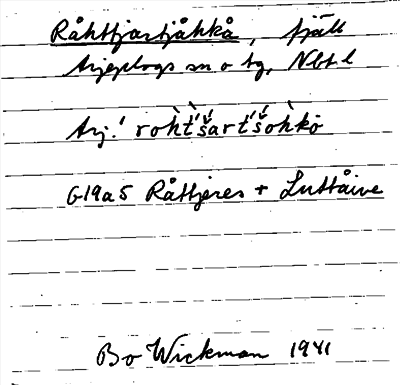 Råhttjartjåhkå, fjäll
Arjeplogs sn o tg, Nbt l
Arj.! roht́šart́šohkö
G19a5 Råttjeres + Luttåive
Bo Wickman 1941